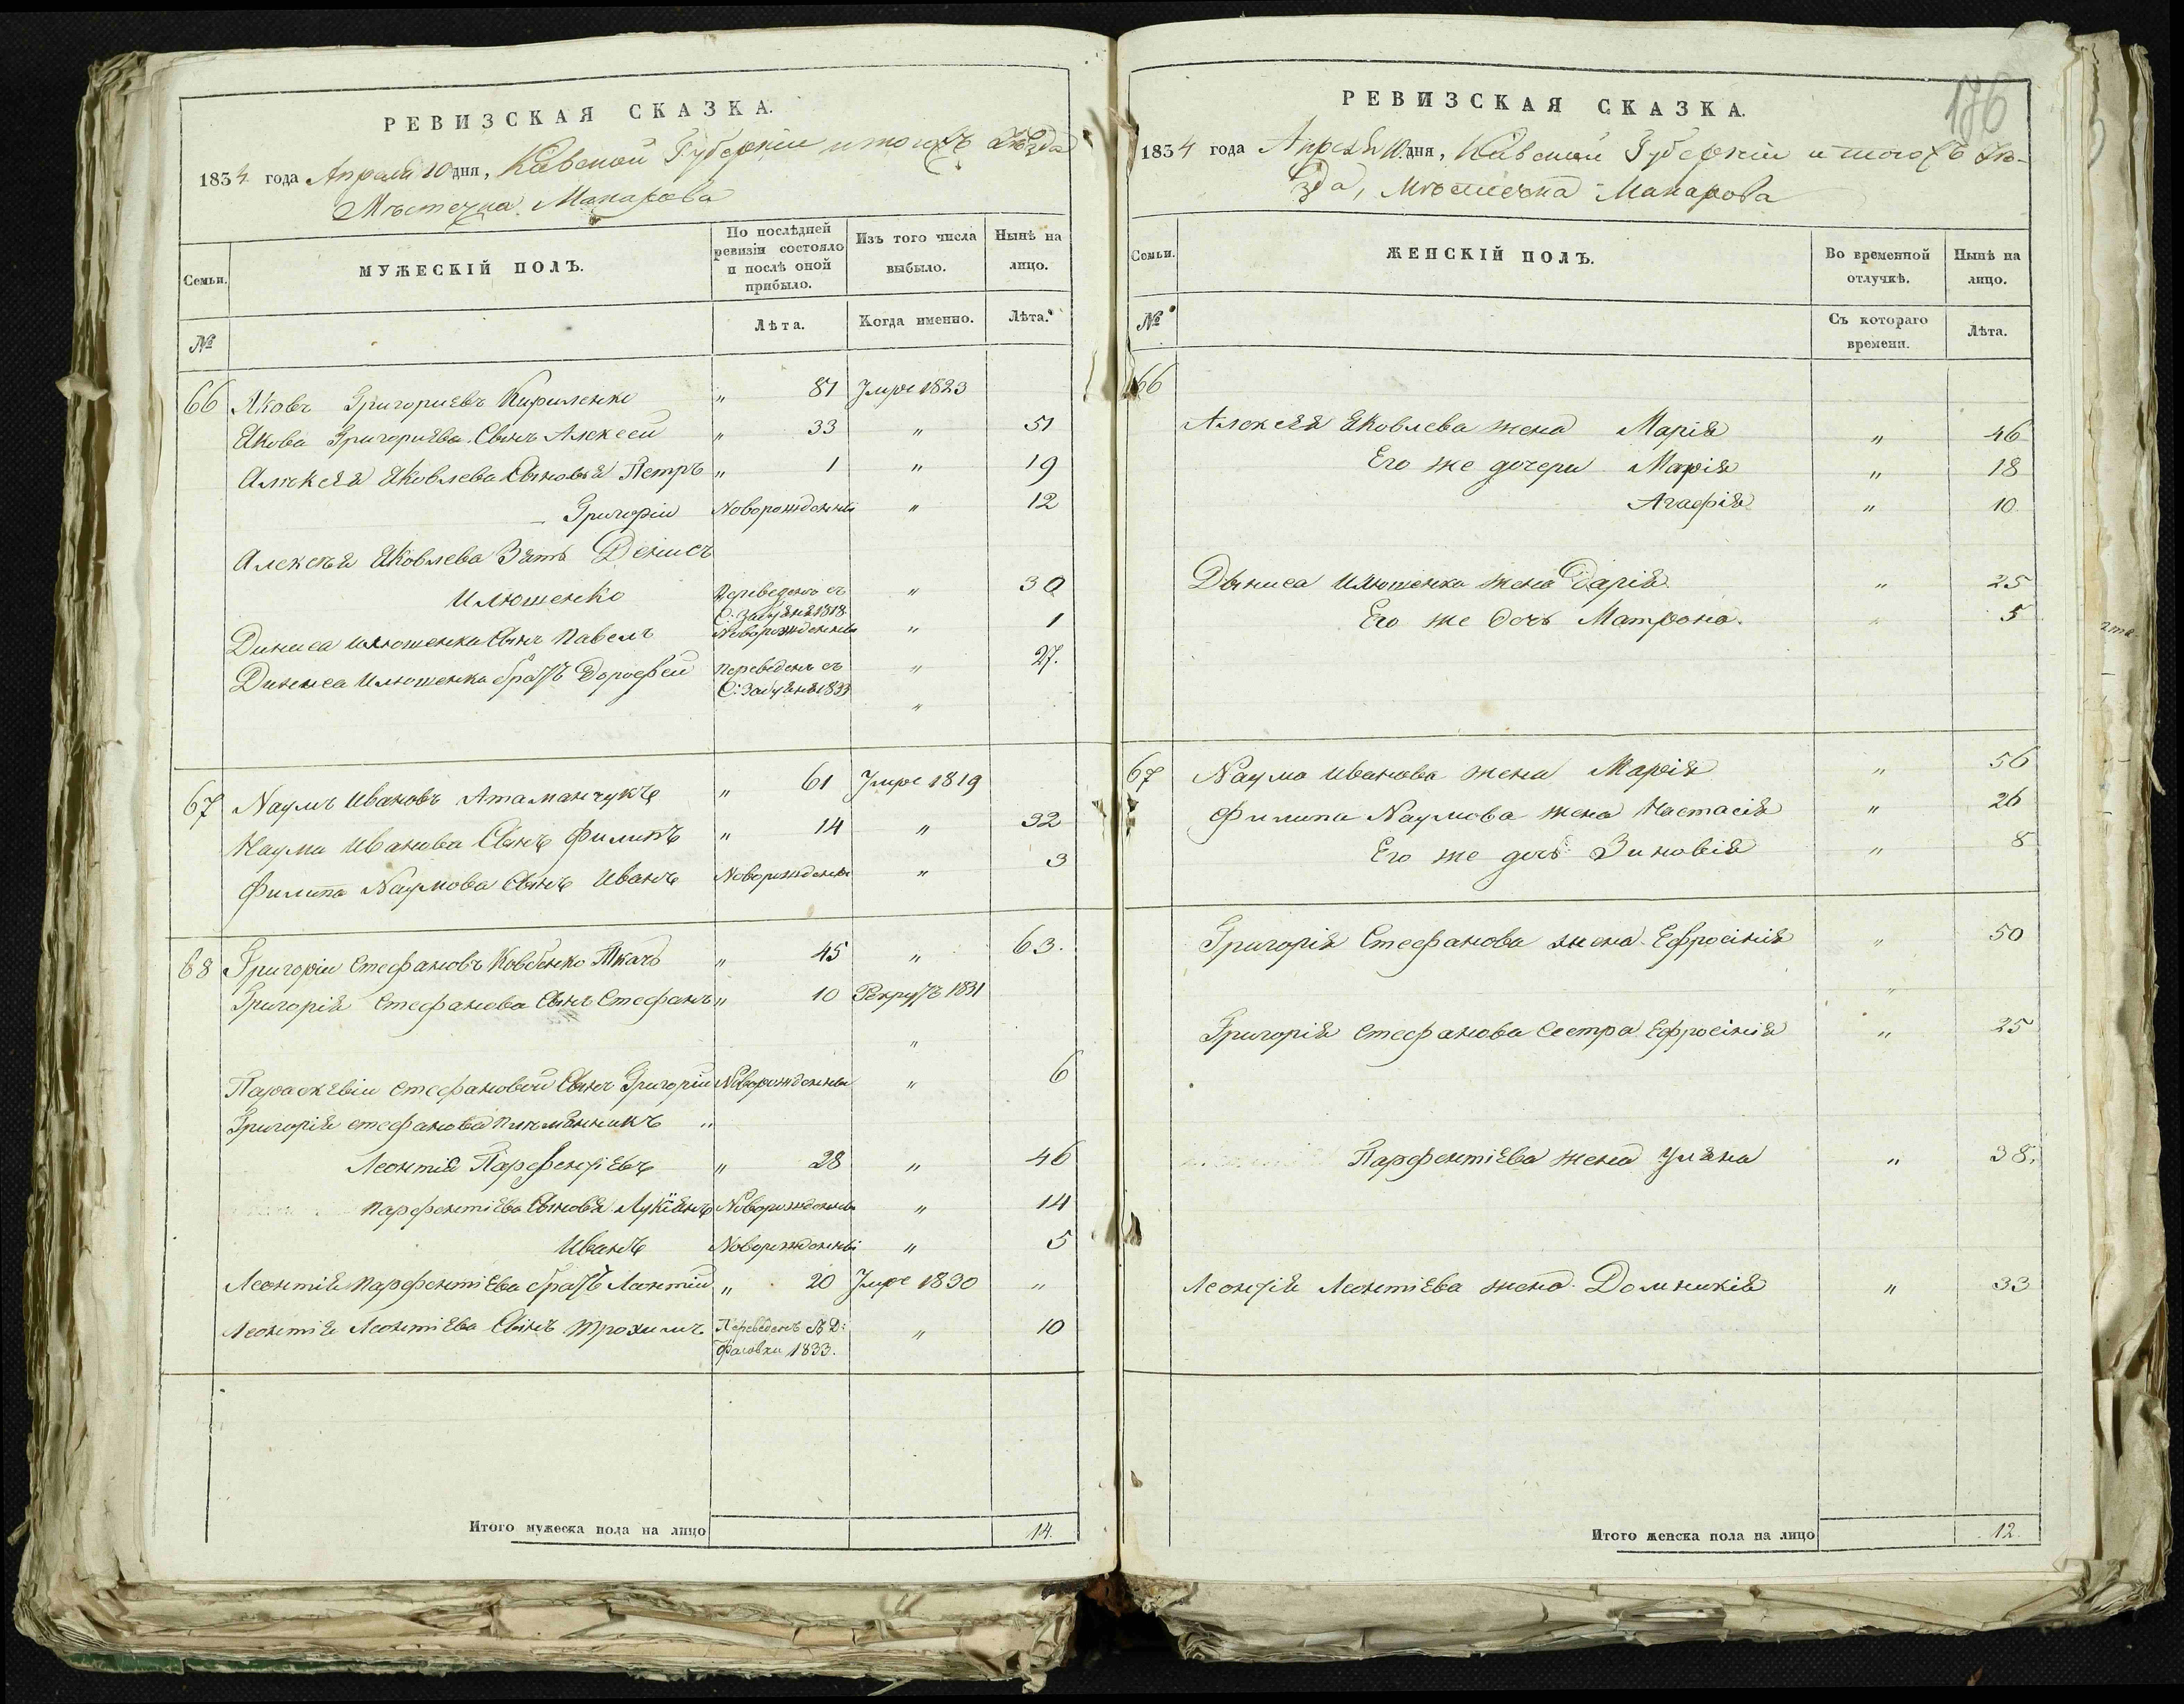 РЕВИЗСКАЯ СКАЗКА.
1834 года Апреля 10 дня, Киевской Губернiи и тогожъ Уезда
Мѣстечка Макарова
Семьи.
МУЖЕСКIЙ ПОЛЪ.
По послѣдней ревизiи состояло и послѣ оной прибыло.
Изъ того числа выбыло.
Нынѣ на лицо.
№
Лѣта.
Когда именно.
Лѣта.
66 Яковъ Григориевъ Кириленко " 81 Умре 1823
Якова Григориева Сынъ Алексей " 33 " 51
Алексея Яковлева Сыновья Петръ " 1 " 19
Григорiи Новорожденный " 12
Алексѣя Яковлева Зять Денисъ
Илюшенко Переведенъ съ " 30
С: Забуяня 1818
Дениса Илюшенка Сынъ Павелъ Новорожденный " 1
Дениса Илюшенка братъ Дорофей Переведенъ съ " 27.
С: Забуяня 1833
"
67 Наумъ Ивановъ Атаманчукъ " 61 Умре 1819
Наума Иванова Сынъ Филипъ " 14 " 32
Филипа Наумова Сынъ Иванъ Новорожденный " 3
68 Григорiи Стефановъ Ковбенко Ткачъ " 45 " 63.
Григорiя Стефанова Сынъ Стефанъ " 10 Рекрутъ 1831
"
Параскевiи Стефановой Сынъ Григорiи Новорожденный " 6
Григорiя Стефанова племянникъ "
Леонтiй Парфентiевъ " 28 " 46
Парфентiева Сыновья Лукiянъ Новорожденный " 14
Иванъ Новорожденный " 5
Леонтiя Парфентiева братъ Леонтiй " 20 Умре 1830 "
Леонтiя Леонтiева Сынъ Трохимъ Переведенъ съ Д: " 10
Фасовки 1833.
Итого мужеска пола на лицо 14.
176
РЕВИЗСКАЯ СКАЗКА.
1834 года Апреля 10 дня, Киевской Губернiи и тогожъ Уѣ-
зда, Мѣстечка Макарова
Семьи.
ЖЕНСКIЙ ПОЛЪ.
Во временной отлучкѣ.
Нынѣ на лицо.
№
Съ котораго времени.
Лѣта.
66
Алексея Яковлева жена Марiя " 46
Его же дочери Марiя " 18
Агафiя " 10.
Дениса Илюшенка жена Дарiя " 25
Его же дочь Матрона. " 5
67 Наума Иванова жена Марiя " 56
Филипа Наумова жена Настасiя " 26
Его же дочь Зиновiя " 8
Григорiя Стефанова жена Ефросiнiя " 50
"
Григорiя Стефанова Сестра Ефросiнiя " 25
Парфентiева жена Уляна " 38.
Леонтiя Леонтiева жена Домникiя " 33
Итого женска пола на лицо 12.